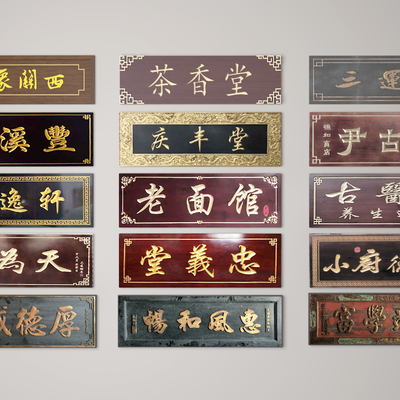 西關
茶香堂
運三
豐溪
庆丰堂
古尹
逸轩
老面馆
古醫
养生
天為
忠義堂
廚小
厚德
惠風和暢
學富